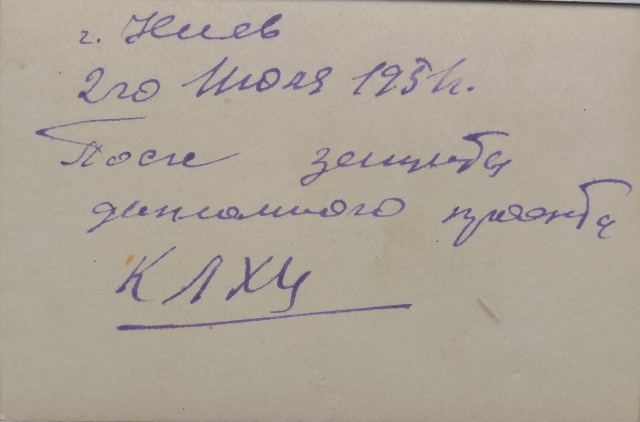 г. Киев
2го Июля 1951г.
После защиты
дипломного проекта